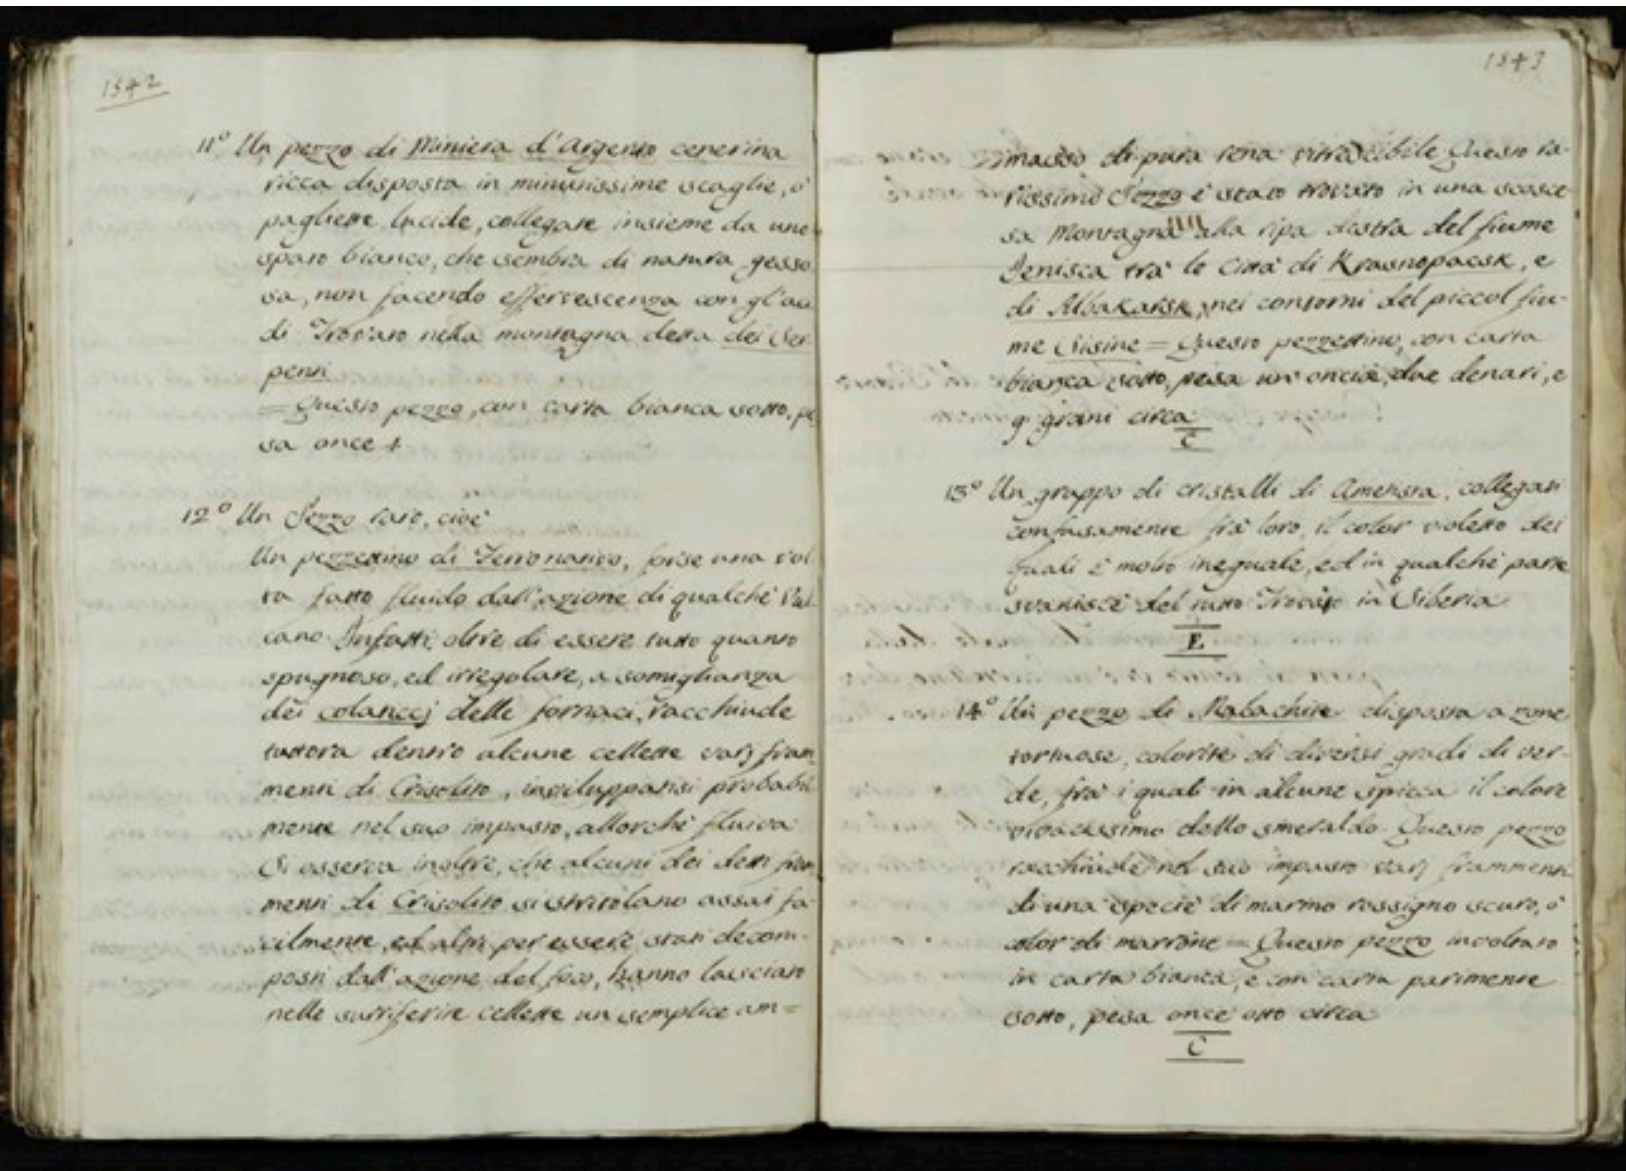 1542
11° Un pezzo di Miniera d'Argento cenerina
ricca disposta in minutissime scaglie, o
pagliette lucide, collegate insieme da uno
spato bianco, che sembra di natura gesso
sa, non facendo effervescenza con gl'aci
di Trovato nella montagna detta dei Ser-
penti
= Questo pezzo, con carta bianca sotto, pe
sa once 4
12° Un Pezzo raro, cioè
Un pezzettino di Ferro nativo, forse una vol
ta fatto fluido dall'azione di qualche Vul
cano. Infatti, oltre di essere tutto quanto
spugnoso, ed irregolare, a somiglianza
dei colaticcj delle fornaci, racchiude
tuttora dentro alcune cellette varj fram
menti di Crisolito, inviluppatisi probabil
mente nel suo impasto, allorchè fluiva
Si osserva inoltre, che alcuni dei detti fram
menti di Crisolito si stritolano assai fa
cilmente, ed altri per essere stati decom-
posti dall'azione del foco, hanno lasciato
nelle surriferite cellette un semplice am=
1543
masso di pura rena vitrescibile Questo ra-
rissimo Pezzo è stato trovato in una scosce
sa Montagna alla ripa destra del fiume
Jenisca trà le Città di Krasnopacsk, e
di Abakarsk, nei contorni del piccol fiu-
me Sisine = Questo pezzettino, con carta
bianca sotto, pesa un'oncia, due denari, e
9 grani circa
C
13° Un gruppo di cristalli di Ametista, collegati
confusamente frà loro, il color violetto dei
quali è molto ineguale, ed in qualche parte
svanisce del tutto Trovato in Siberia
E
14° Un pezzo di Malachite disposta a zone
tortuose, colorite di diversi gradi di ver-
de, frà i quali in alcune spicca il colore
vivacissimo dello smeraldo. Questo pezzo
racchiude nel suo impasto varj frammenti
di una specie di marmo rossigno scuro, o
color di marrone = Questo pezzo involtato
in carta bianca, e con carta parimente
sotto, pesa once otto circa
C